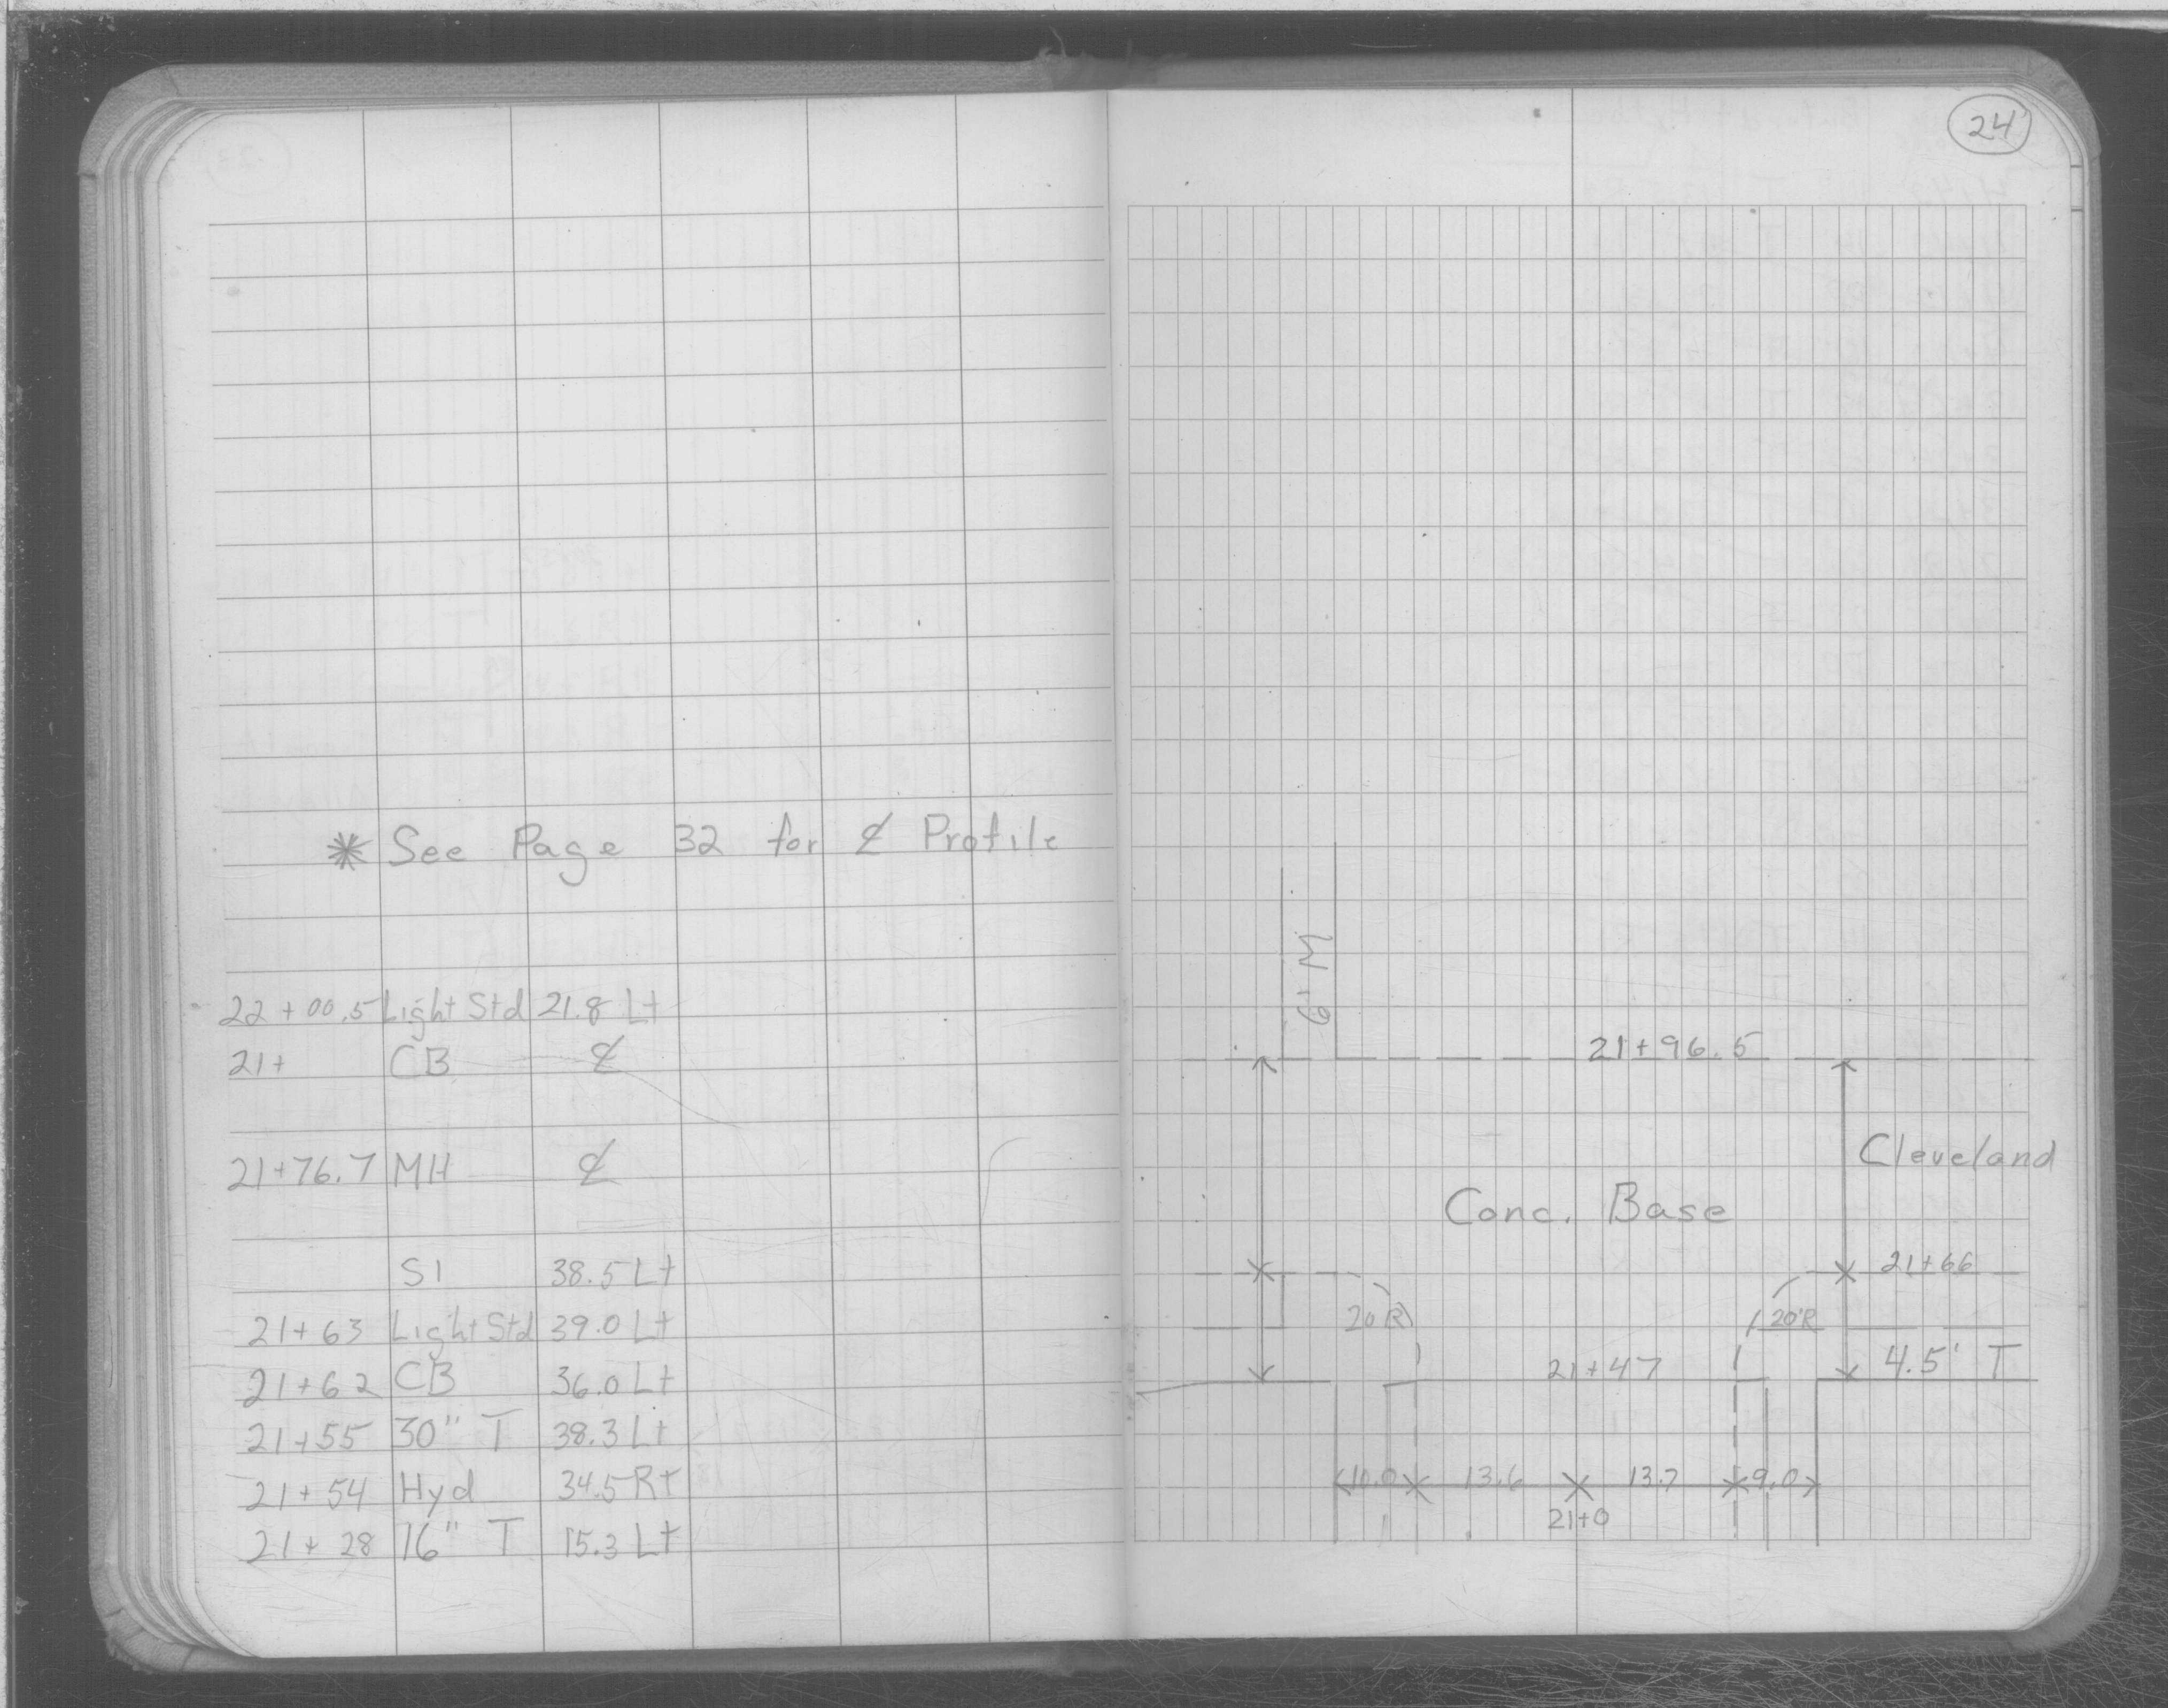 * See Page 32 for ℄ Profile
22+00.5 Light Std 21.8 Lt
21+ CB ℄
21+76.7 MH ℄
S1 38.5 Lt
21+63 Light Std 39.0 Lt
21+62 CB 36.0 Lt
21+55 30" T 38.3 Lt
21+54 Hyd 34.5 Rt
21+28 16" T 15.3 Lt
24
6' M
21+96.5
Cleveland
Conc. Base
21+66
20 R 20'R
21+47 4.5' T
10.0 13.6 13.7 9.0
21+0